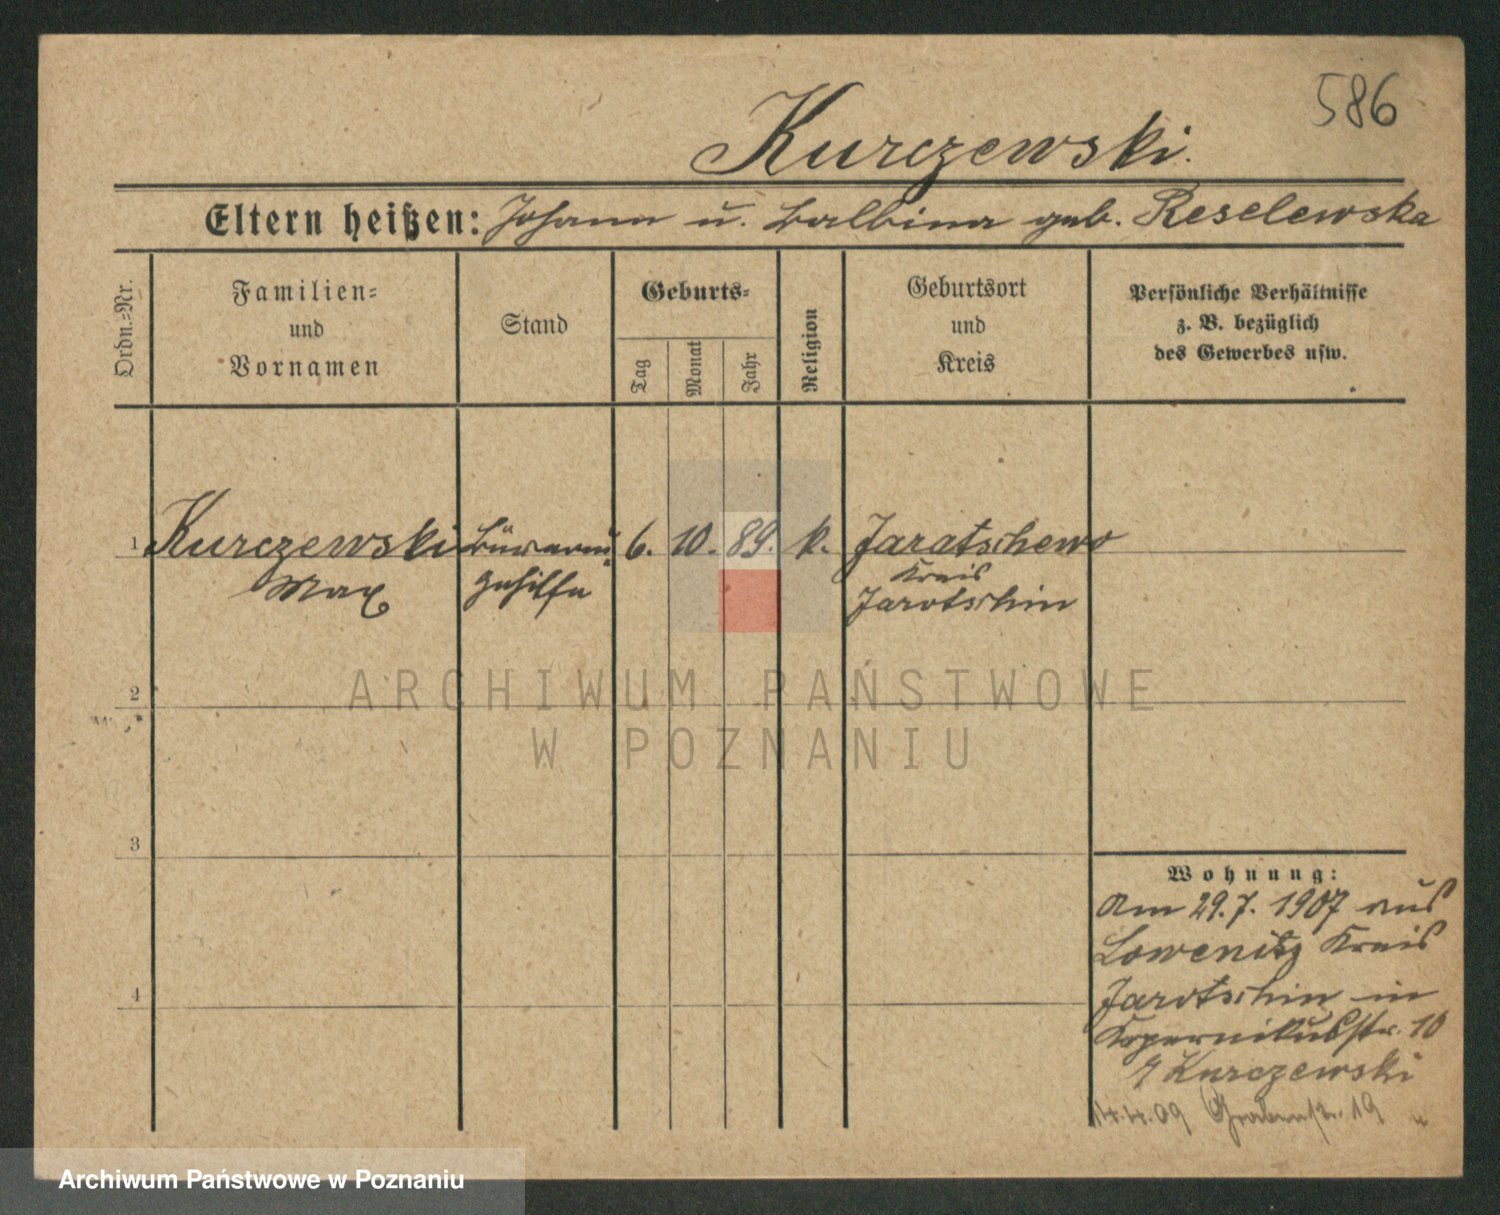 586
Kurczewski.
Eltern heißen: Johann u. Balbina geb. Reselewska
Ordn.-Nr.
Familien- und Vornamen
Stand
Geburts-
Tag
Monat
Jahr
Religion
Geburtsort und Kreis
Persönliche Verhältnisse
z. B. bezüglich
des Gewerbes usw.
1 Kurczewski Büreau- 6. 10. 89. k. Jaratschewo
Max gehilfe Kreis
Jarotschin
2
3
4
Wohnung:
Am 29.7. 1907 aus
Lowenitz Kreis
Jarotschin in
Kopernikusstr. 10
Kurczewski
14.4.09 Grabenstr. 19
ARCHIWUM PAŃSTWOWE
W POZNANIU
Archiwum Państwowe w Poznaniu